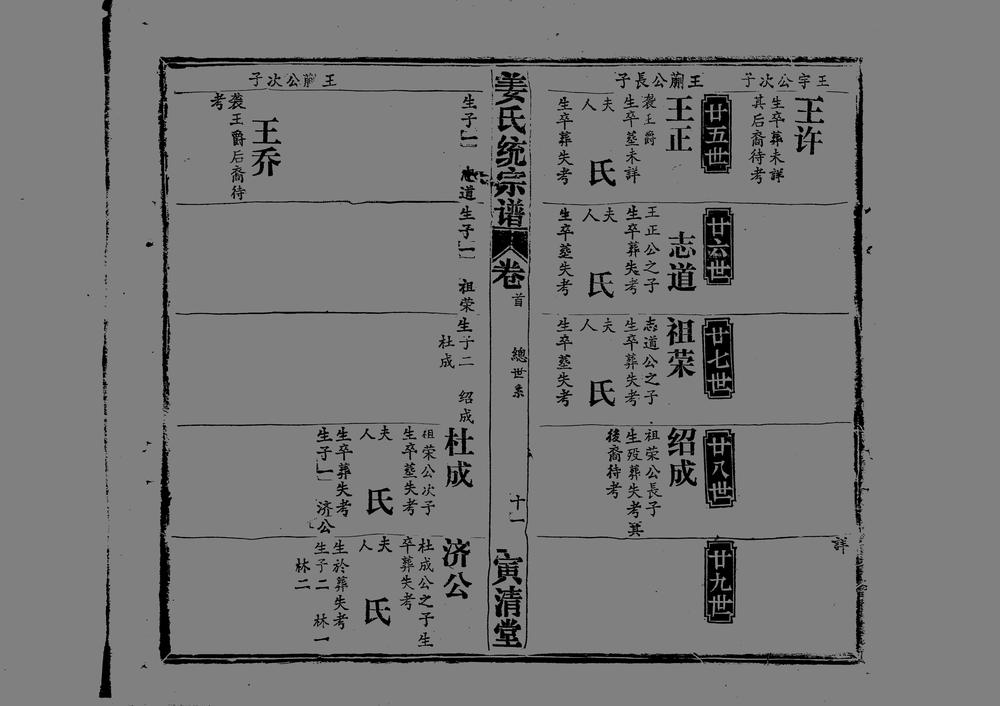 王宇公次子
王许
生卒葬未詳
其后裔待考
詳
廿五世
廿六世
廿七世
廿八世
廿九世
王蕳公長子
王正
袭王爵
生卒塟未詳
夫
人
氏
生卒葬失考
志道
王正公之子
生卒塟失考
夫
人
氏
生卒塟失考
祖荣
志道公之子
生卒葬失考
夫
人
氏
生卒塟失考
绍成
祖荣公長子
生殁葬失考其
後裔待考
姜氏统宗谱
卷
首
總世系
十一
寅清堂
生子一 志道
生子一 祖荣
生子二 绍成
杜成
杜成
祖荣公次子
生卒塟失考
夫
人
氏
生卒葬失考
生子一 济公
济公
杜成公之子生
卒葬失考
夫
人
氏
生於葬失考
生子二 林一
林二
王蕳公次子
王乔
袭王爵后裔待
考